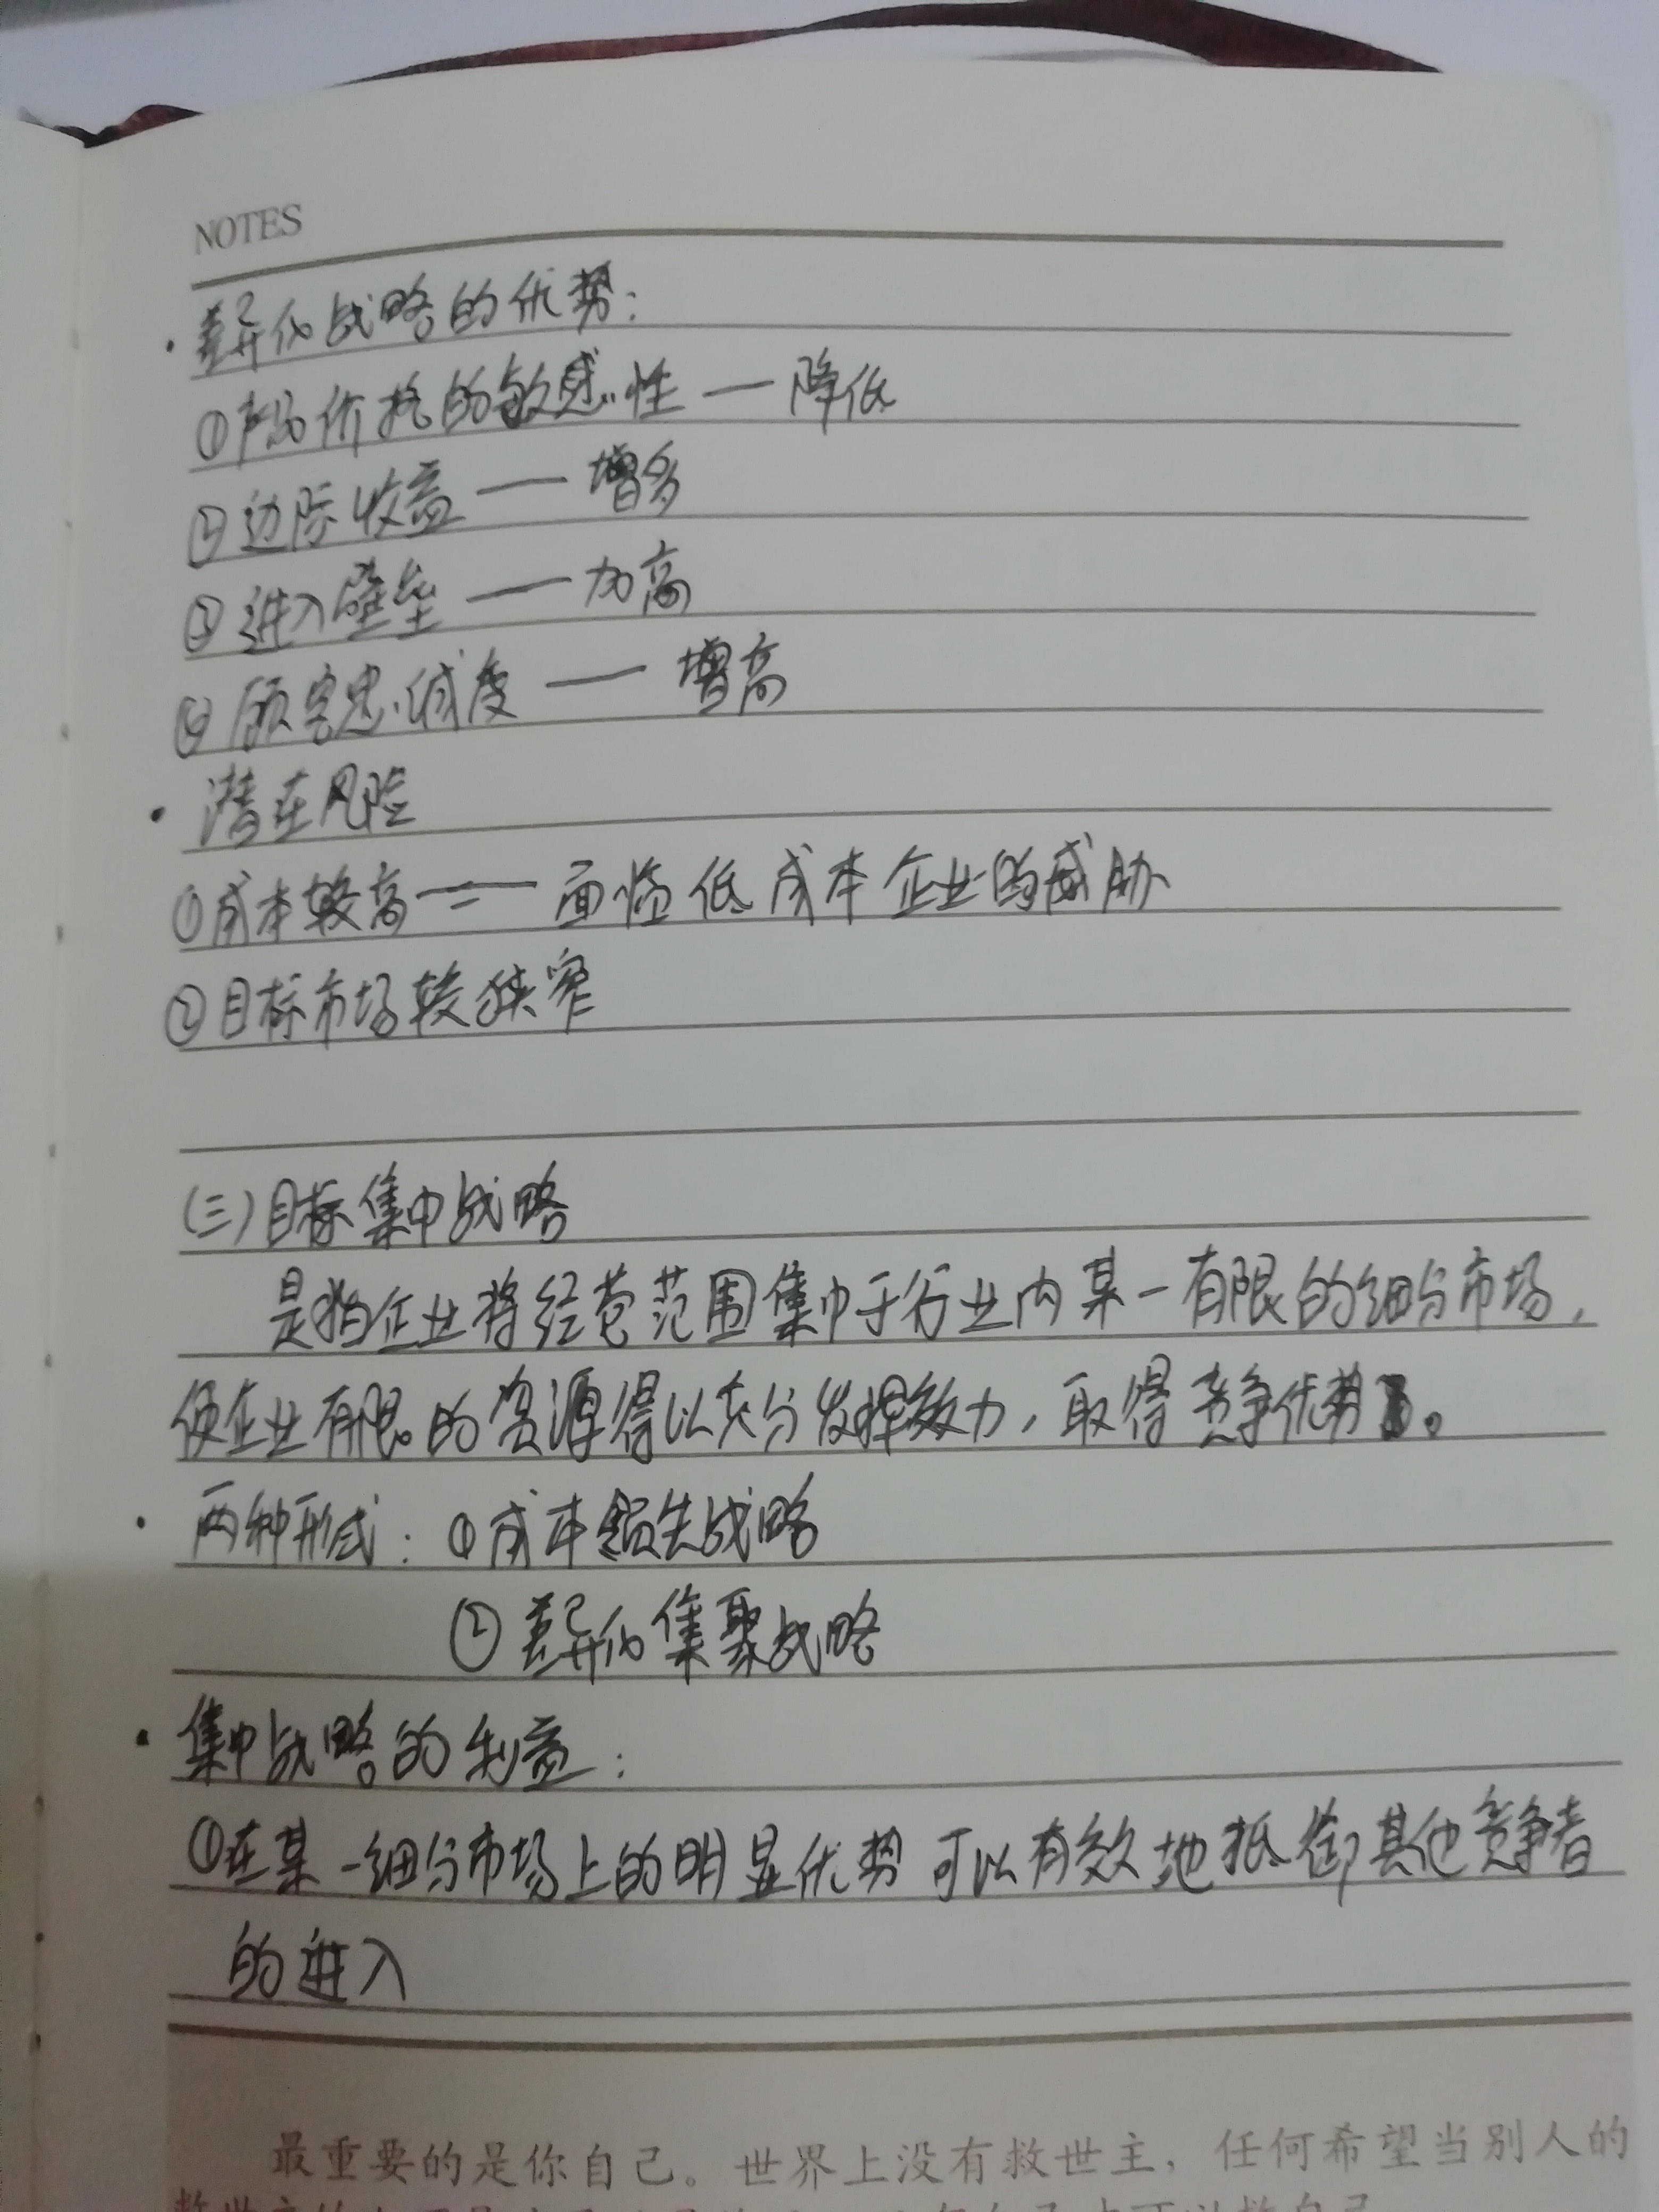 NOTES
· 差异化战略的优势：
①产品价格的敏感性 — 降低
②边际收益 — 增多
③进入壁垒 — 加高
④顾客忠诚度 — 增高
· 潜在风险
①成本较高 —— 面临低成本企业的威胁
②目标市场较狭窄
(三)目标集中战略
是指企业将经营范围集中于行业内某一有限的细分市场，
使企业有限的资源得以充分发挥效力，取得竞争优势。
· 两种形式：①成本领先战略
②差异化集聚战略
· 集中战略的利益：
①在某一细分市场上的明显优势 可以有效地抵御其他竞争者
的进入
最重要的是你自己。世界上没有救世主，任何希望当别人的